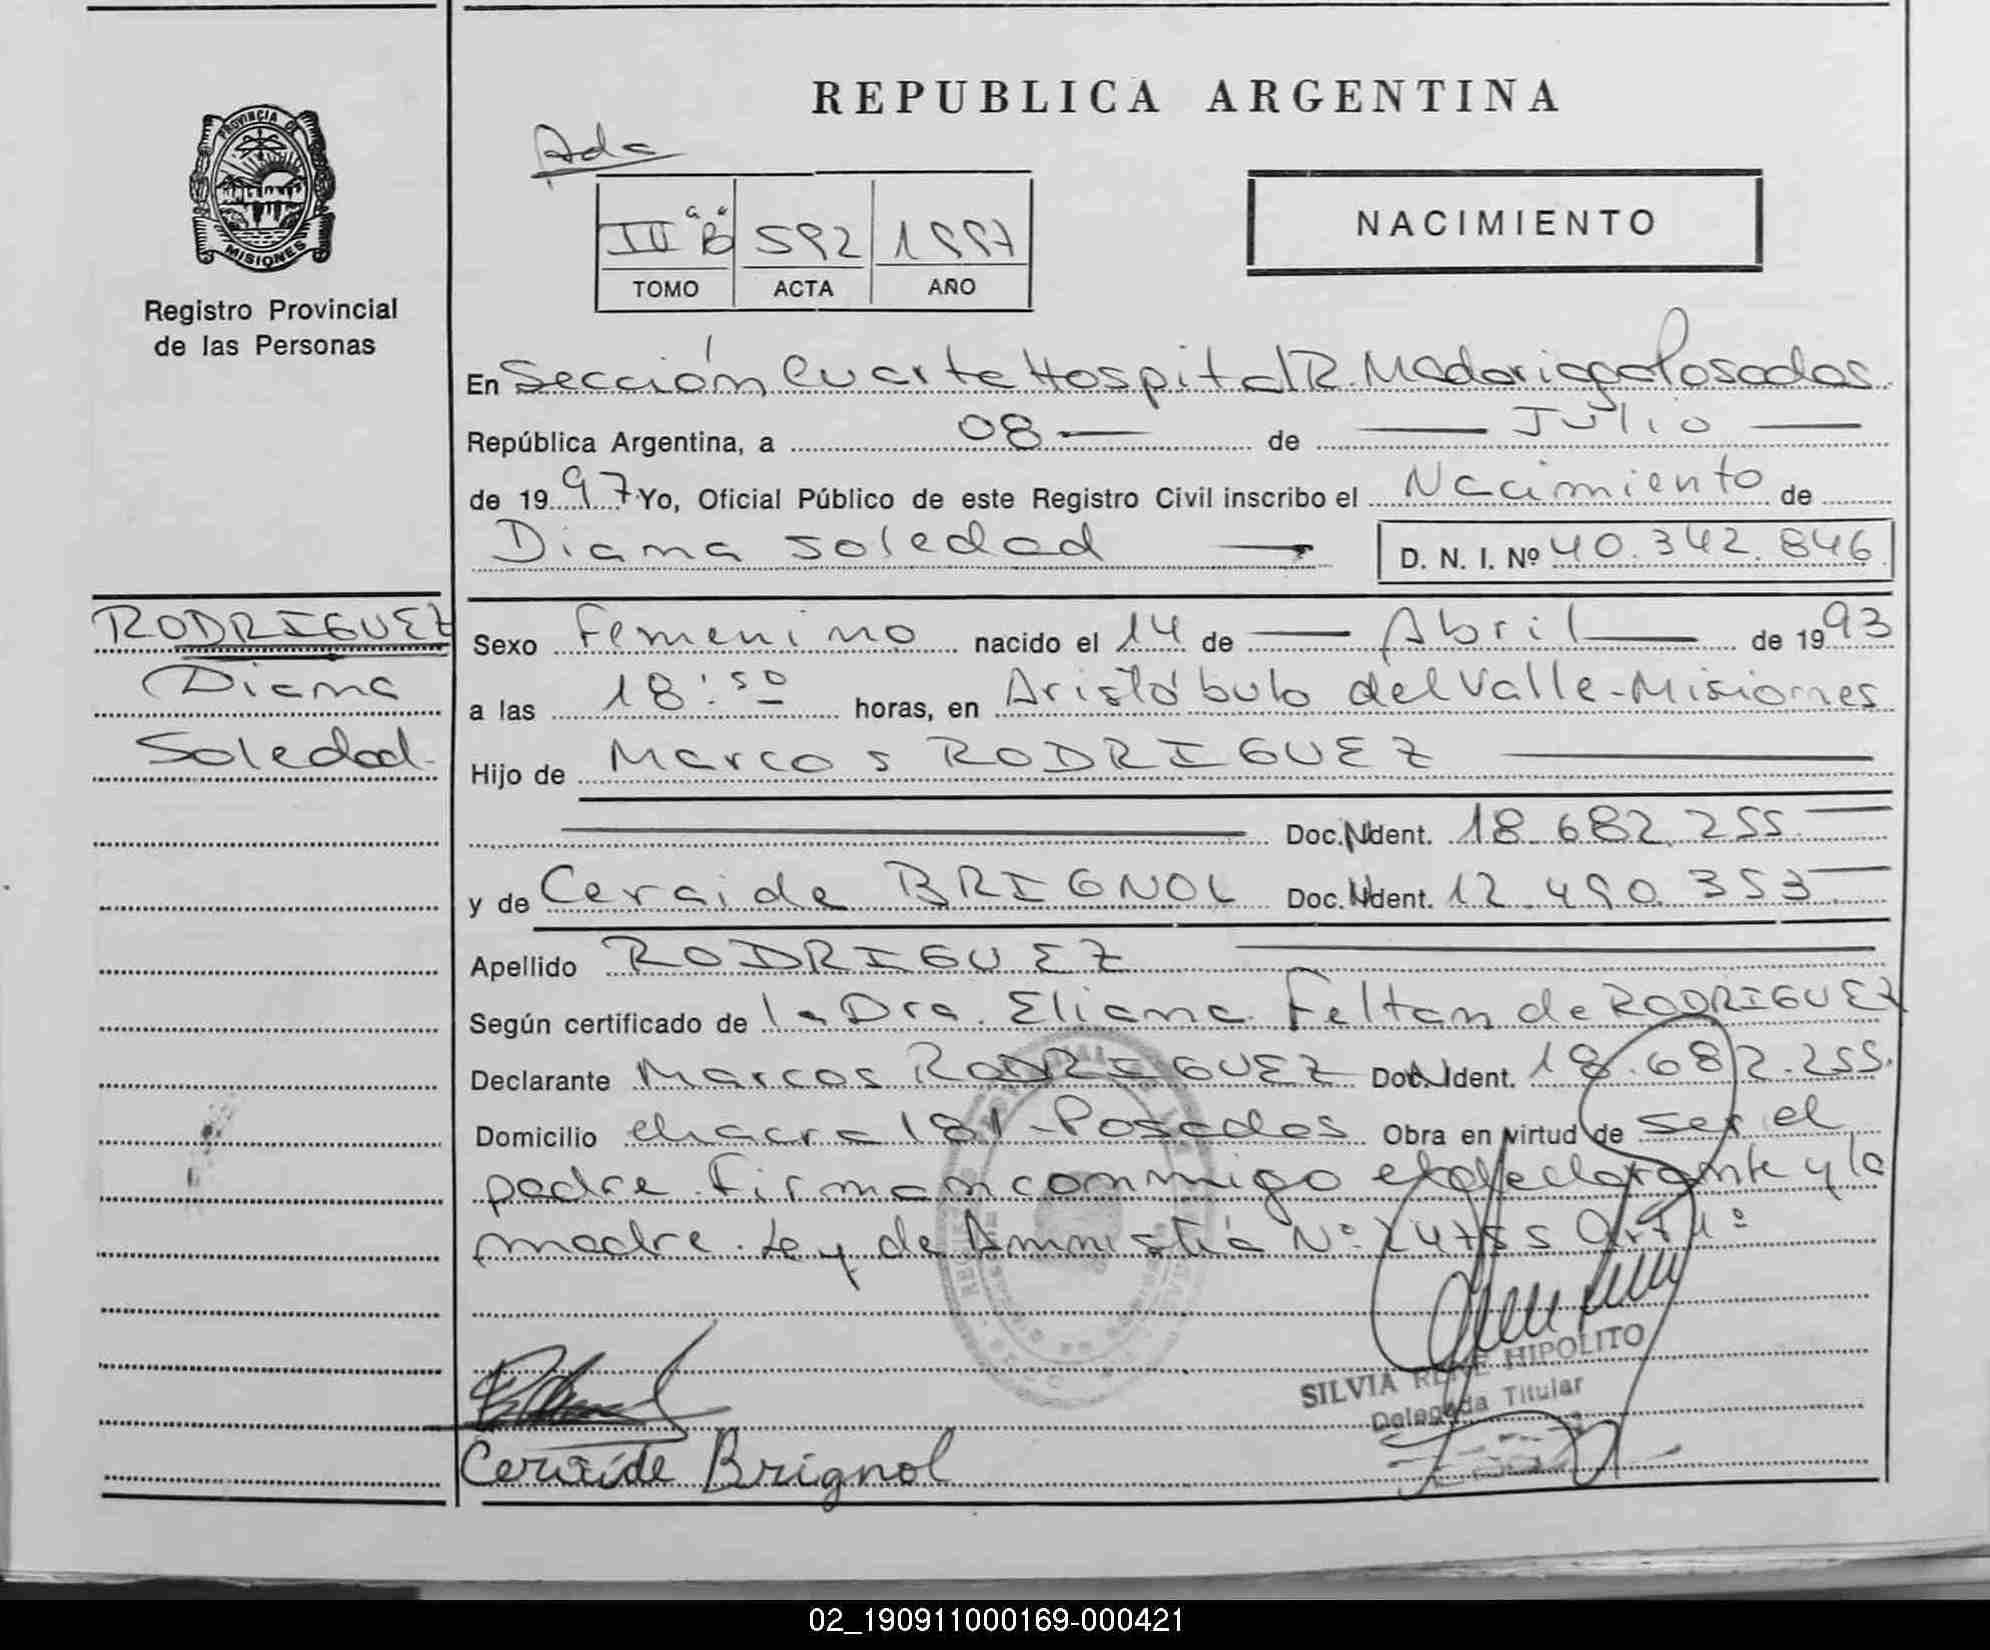 REPUBLICA ARGENTINA
PROVINCIA DE
MISIONES
Registro Provincial
de las Personas
Ada
III "B" 592 1997
TOMO ACTA AÑO
NACIMIENTO
En Sección Cuarta Hospital R. Madariaga Posadas
República Argentina, a 08 de Julio
de 1997 Yo, Oficial Público de este Registro Civil inscribo el Nacimiento de
Diana Soledad D. N. I. Nº 40.342.846
RODRIGUEZ
Diana
Soledad
Sexo Femenino nacido el 14 de Abril de 1993
a las 18:50 horas, en Aristóbulo del Valle - Misiones
Hijo de Marcos RODRIGUEZ
Doc. Ident. 18.682.255
y de Ceraide BRIGNOL Doc. Ident. 12.490.353
Apellido RODRIGUEZ
Según certificado de la Dra. Eliana Feltan de RODRIGUEZ
Declarante Marcos RODRIGUEZ Doc. Ident. 18.682.255.
Domicilio chacra 181 - Posadas Obra en virtud de ser el
padre. Firman conmigo el declarante y la
madre. Ley de Amnistía Nº 24755 Art 1º
SILVIA RENE HIPOLITO
Delegada Titular
Ceraide Brignol
02_190911000169-000421